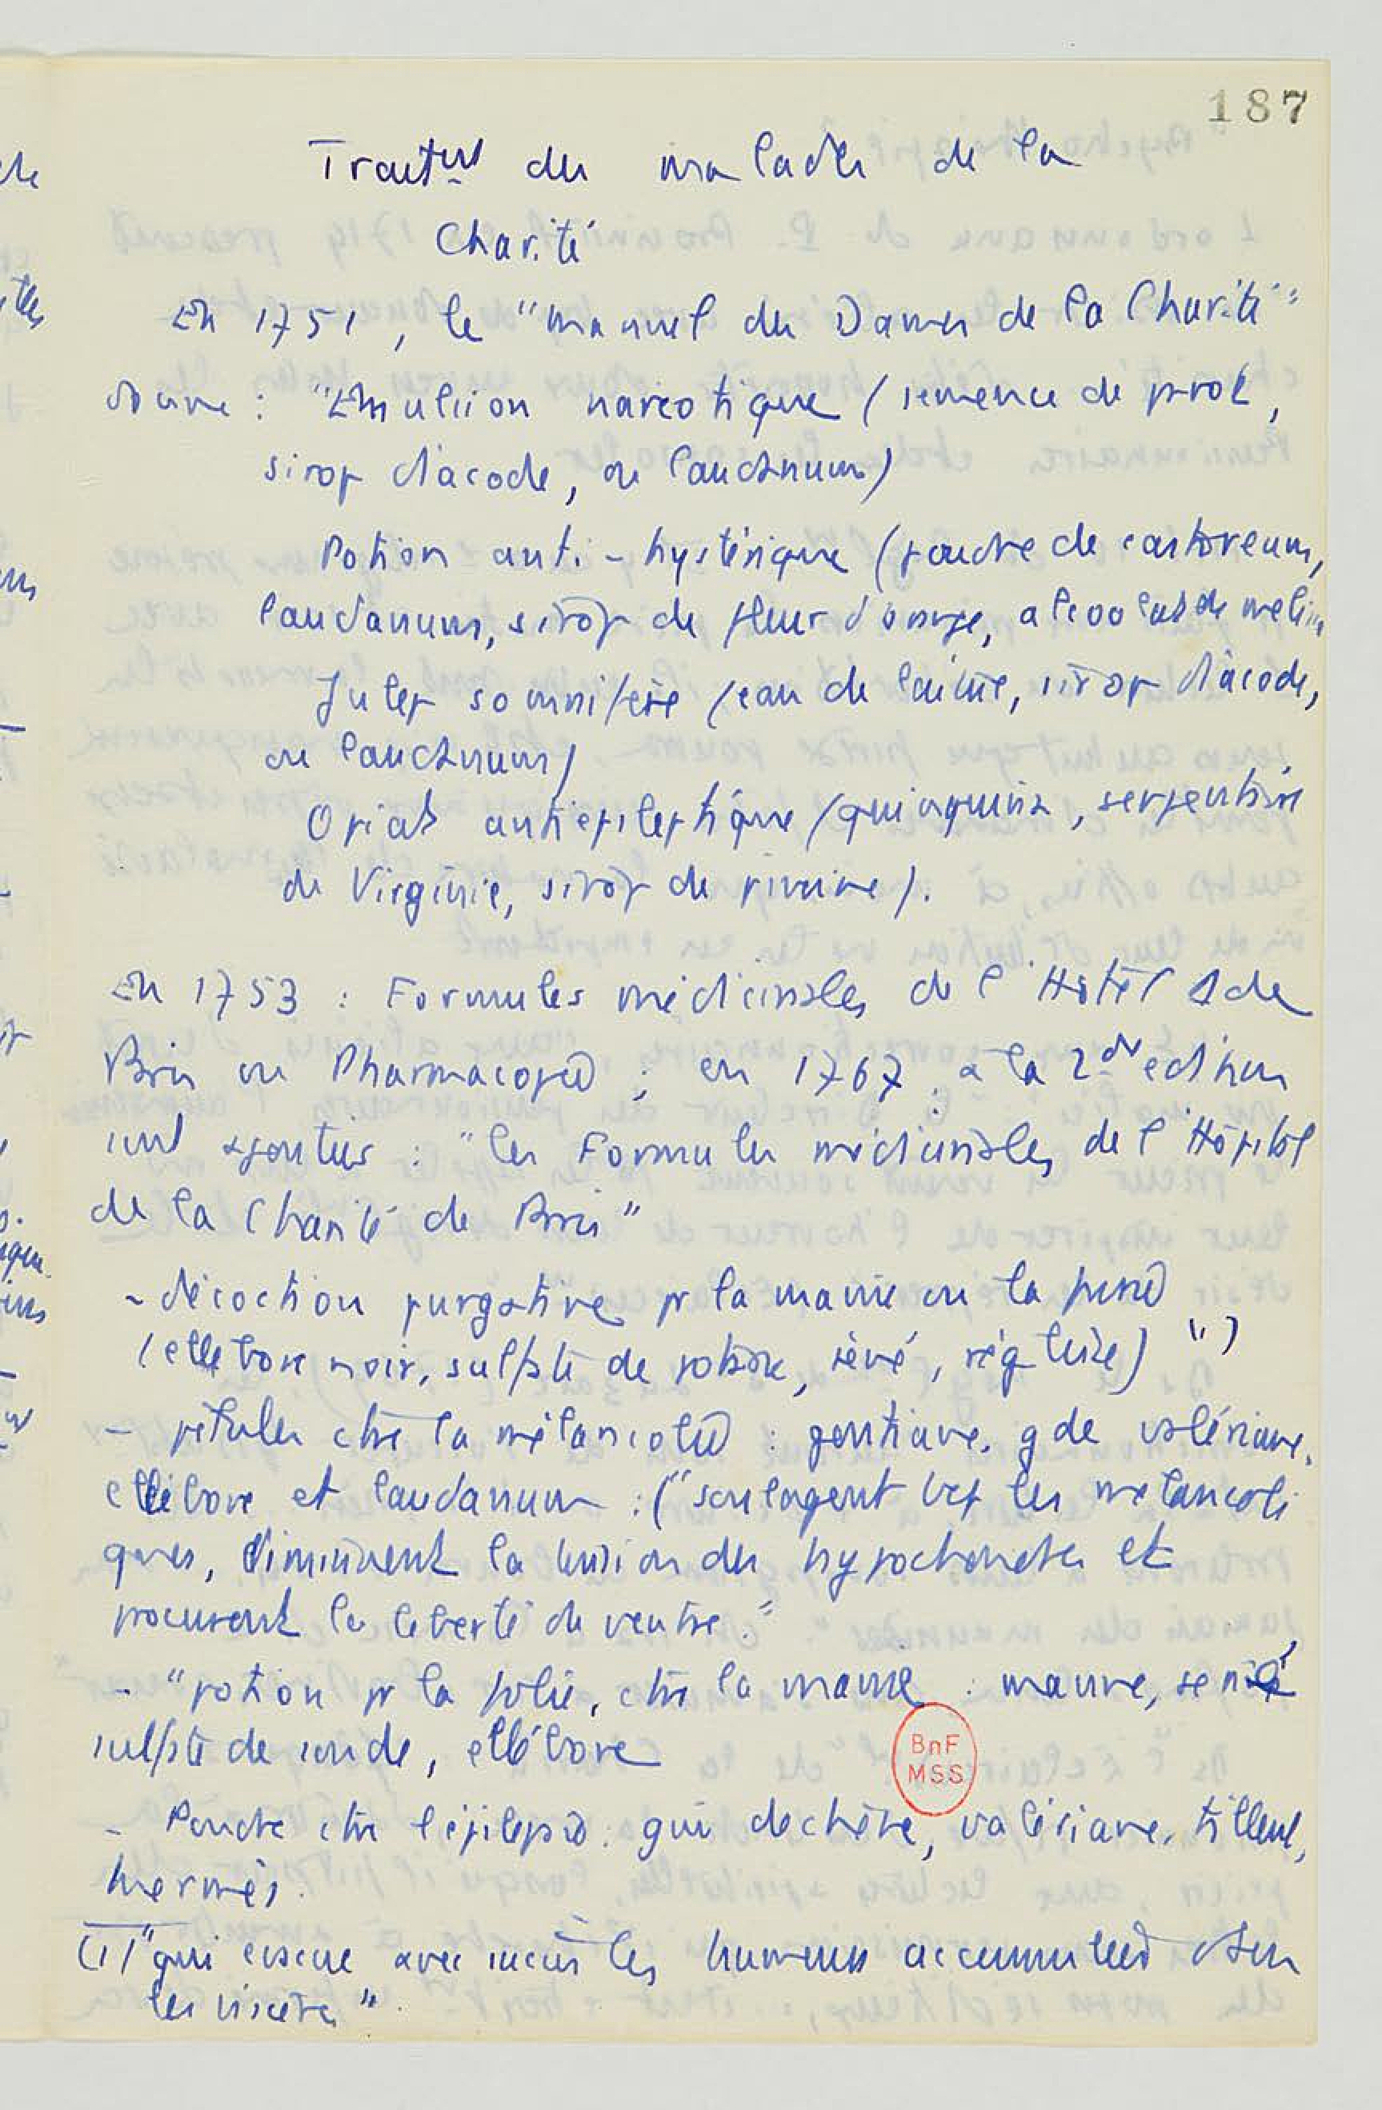 187
Traitmt des malades de la
Charité
En 1751, le "manuel des Dames de la Charité"
donne : "Emulsion narcotique (semence de pvot,
sirop diacode, ou laudanum)
Potion anti-hystérique (poudre de castoreum,
laudanum, sirop de fleur d'orange, alcoolat de
Julep somnifère (eau de laitue, sirop diacode,
ou laudanum)
Opiat antiepileptique (quinquina, serpentaire
de Virginie, sirop de pivoine).
En 1753 : Formules médicinales de l'Hôtel D de
Paris ou Pharmacopée ; en 1767, à la 2de edition
sont ajoutées : "les Formules médicinales de l'Hôpital
de la Charité de Paris"
- décoction purgative pr la manie ou la
(ellebore noir, sulfate de potasse, séné, réglisse) (1)
- pilules ctre la mélancolie : gentiane, g de valériane,
ellébore et laudanum : ("soulagent bcp les mélancoli
ques, diminuent la tension des hypochondres et
procurent la liberté du ventre."
- "potion pr la folie, ctre la manie : mauve, séné
sulfate de soude, ellébore
BnF
MSS
- Poudre ctre l'épilepsie : gui de chêne, valériane, tilleul,
hermès.
(1) "qui evacue avec succès les humeurs accumulées dans
les viscères".